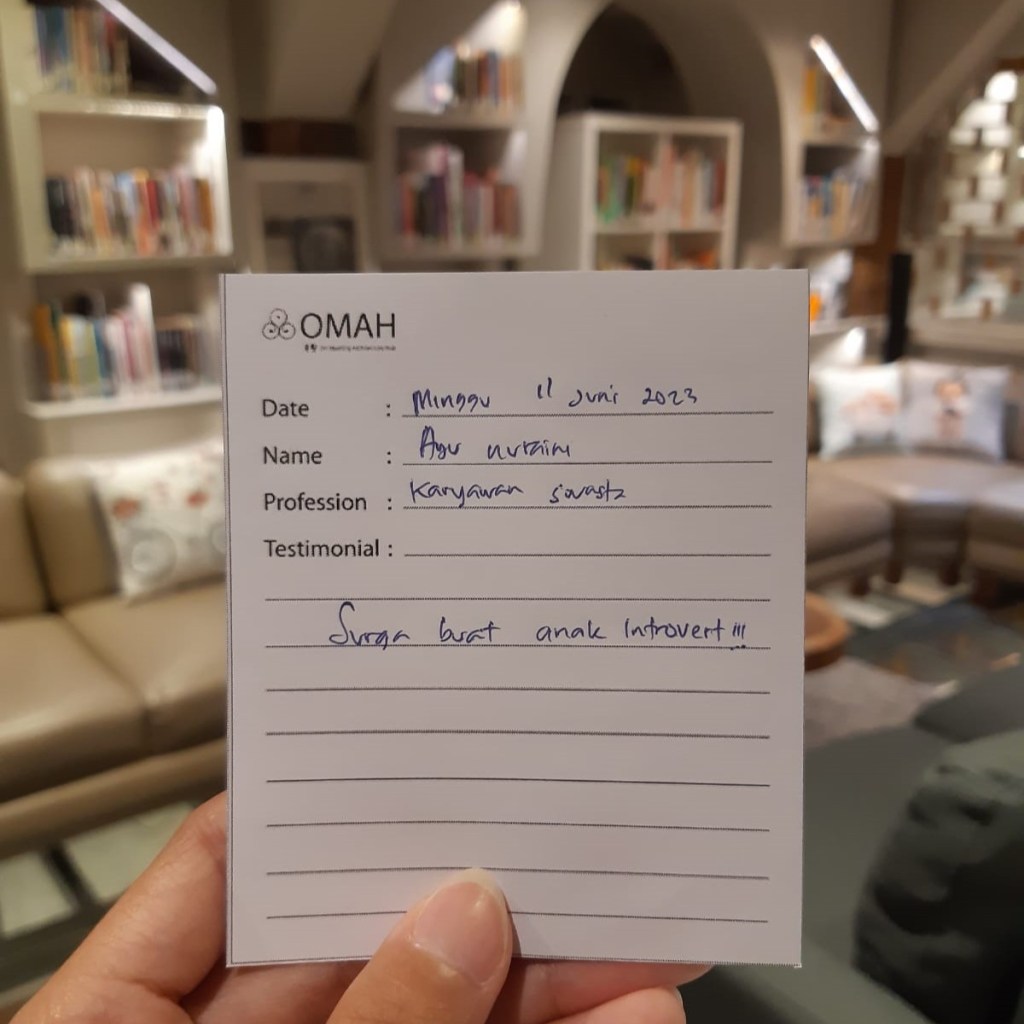 OMAH
Date : Minggu 11 Juni 2023
Name : Ayu nuraini
Profession : Karyawan swasta
Testimonial :
Surga buat anak Introvert !!!